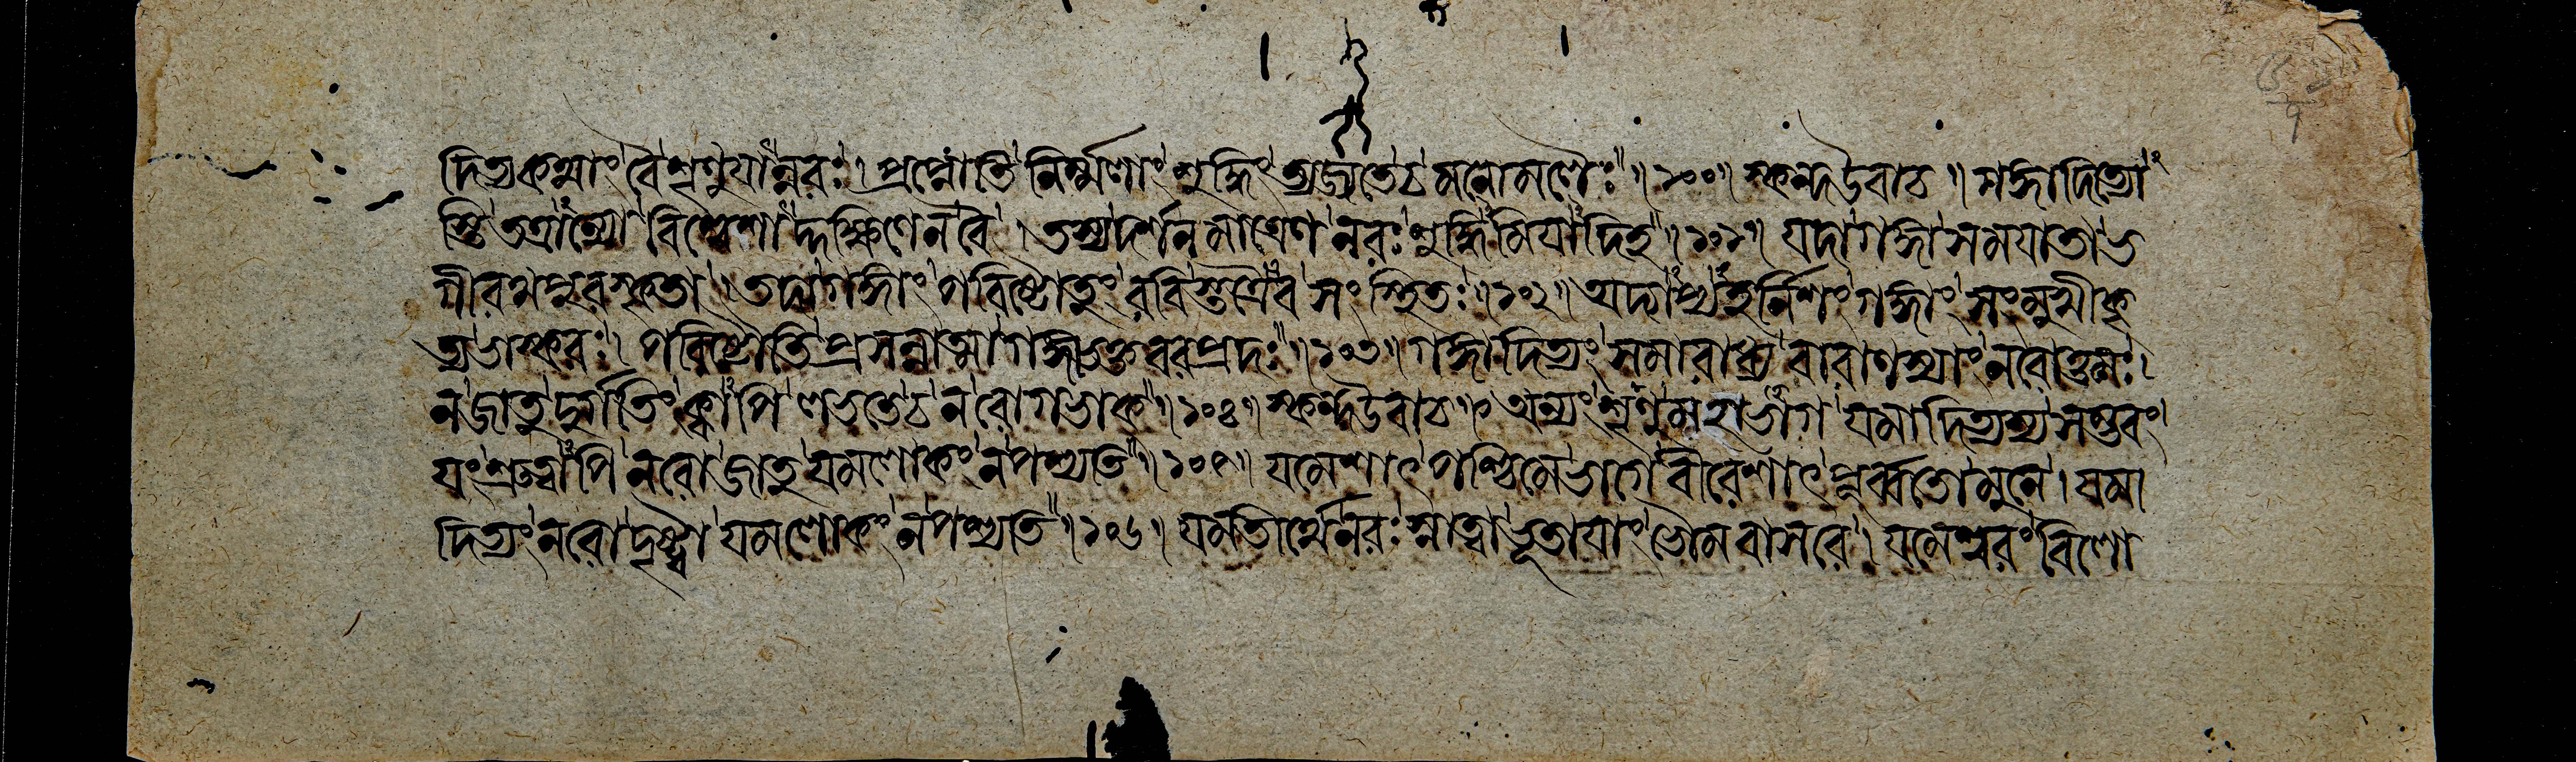 দিত্যকথাং বৈ শৃণুযান্নরঃ। প্রাপ্নোতি নির্ম্মলাং শুদ্ধিং ত্যজ্যতে চ মনোমলৈঃ॥১০০॥ স্কন্দ উবাচ॥ গঙ্গাদিত্যো
স্তি তত্রান্যো বিশ্বেশাদ্দক্ষিণেন বৈ। তস্য দর্শনমাত্রেণ নরঃ শুদ্ধিমিযাদিহ॥১০১॥ যদা গঙ্গা সমযাতা ভ
গীরথপুরস্কৃতা। তদা গঙ্গাং পরিষ্টোতুং রবিস্তত্রৈব সংস্থিতঃ॥১০২॥ অদ্যাপ্যহর্নিশং গঙ্গাং সংমুখীকৃ
ত্য ভাস্করঃ। পরিষ্টৌতি প্রসন্নাত্মা গঙ্গাভক্তবরপ্রদঃ॥১০৩॥ গঙ্গাদিত্যং সমারাধ্য বারাণস্যাং নরোত্তমঃ।
ন জাতু দুর্গতিং ক্বাপি লভতে চ ন রোগভাক্॥১০৪॥ স্কন্দ উবাচ॥ অন্যং শৃণু মহাভাগ যমাদিত্যস্য সম্ভবং।
যং শ্রুত্বাপি নরো জাতু যমলোকং ন পশ্যতি॥১০৫॥ যমেশাৎ পশ্চিমে ভাগে বীরেশাৎ পূর্ব্বতো মুনে। যমা
দিত্যং নরো দৃষ্ট্বা যমলোকং ন পশ্যতি॥১০৬॥ যমতীর্থে নরঃ স্নাত্বা ভূতাযাং ভৌমবাসরে। যমেশ্বরং বিলো